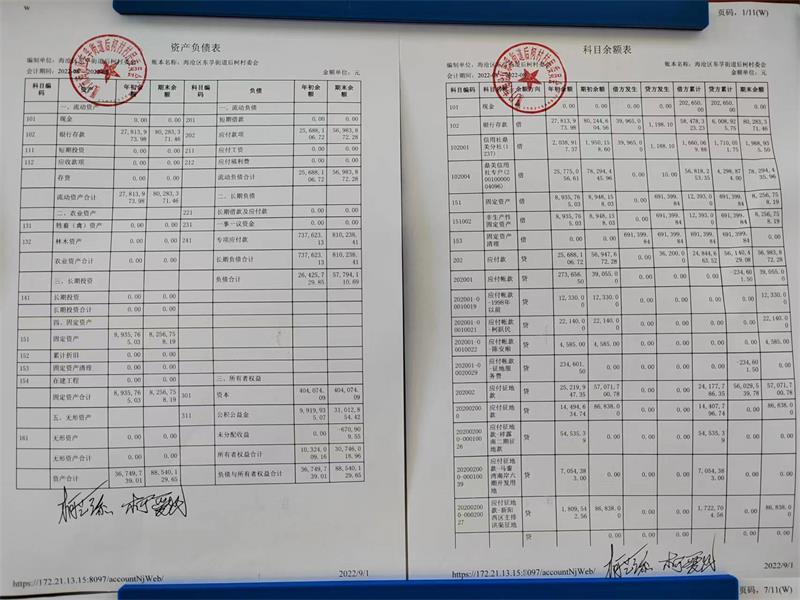 页码, 1/11(W)
W
资产负债表
编制单位: 海沧区东孚街道后柯村村委会 账本名称: 海沧区东孚街道后柯村委会
金额单位: 元
科目编码 资产 年初余额 期末余额 科目编码 负债 年初余额 期末余额
一、流动资产 一、流动负债
101 现金 0.00 0.00 201 短期借款 0.00 0.00
102 银行存款 27,813,973.98 80,283,371.46 202 应付款项 25,688,106.72 56,983,872.28
111 短期投资 0.00 0.00 211 应付工资 0.00 0.00
112 应收款项 0.00 0.00 212 应付福利费 0.00 0.00
存货 0.00 0.00 流动负债合计 25,688,106.72 56,983,872.28
流动资产合计 27,813,973.98 80,283,371.46 二、长期负债
二、农业资产 221 长期借款及应付款 0.00 0.00
131 牲畜（禽）资产 0.00 0.00 231 一事一议资金 0.00 0.00
132 林木资产 0.00 0.00 241 专项应付款 737,623.13 810,238.41
农业资产合计 0.00 0.00 长期负债合计 737,623.13 810,238.41
三、长期投资 负债合计 26,425,729.85 57,794,110.69
141 长期投资 0.00 0.00
长期投资合计 0.00 0.00
四、固定资产
151 固定资产 8,935,765.03 8,256,758.19
152 累计折旧 0.00 0.00
153 固定资产清理 0.00 0.00
154 在建工程 0.00 0.00 三、所有者权益
固定资产合计 8,935,765.03 8,256,758.19 301 资本 404,074.09 404,074.09
五、无形资产 311 公积公益金 9,919,935.07 31,012,854.42
161 无形资产 0.00 0.00 未分配收益 0.00 -670,909.55
无形资产合计 0.00 0.00 所有者权益合计 10,324,009.16 30,746,018.96
资产合计 36,749,739.01 88,540,129.65 负债与所有者权益合计 36,749,739.01 88,540,129.65
https://172.21.13.15:8097/accountNjWeb/
2022/9/1
科目余额表
账本名称: 海沧区东孚街道后柯村委会
金额单位: 元
科目编码 方向 年初余额 期初余额 借方发生 贷方发生 借方累计 贷方累计 期末余额
101 现金 借 0.00 0.00 0.00 0.00 202,650.00 202,650.00 0.00
102 银行存款 借 27,813,973.98 80,244,604.56 39,965.00 1,198.10 58,478,323.23 6,008,925.75 80,283,371.46
102001 借 2,038,917.37 1,950,158.60 39,965.00 1,168.10 1,988,955.50
102004 借 25,775,056.61 78,294,445.96 0.00 56,818,253.35 4,298,874.00 78,294,435.96
151 固定资产 借 8,935,765.03 8,948,158.03 0.00 691,399.84 12,393.00 691,399.84 8,256,758.19
151002 非生产性固定资产 借 8,935,765.03 8,948,158.03 0.00 691,399.84 12,393.00 691,399.84 8,256,758.19
153 固定资产清理 借 0.00 0.00 691,399.84 691,399.84 691,399.84 691,399.84 0.00
202 应付款 贷 25,688,106.72 56,947,672.28 0.00 36,200.00 24,844,663.52 56,140,429.08 56,983,872.28
202001 应付帐款 贷 273,656.50 39,055.00 0.00 0.00 0.00 -234,601.50 39,055.00
应付帐款-1998年以前 贷 12,330.00 12,330.00 0.00 0.00 0.00 0.00 12,330.00
应付帐款-柯跃民 贷 22,140.00 22,140.00 0.00 0.00 0.00 0.00 22,140.00
应付帐款-陈安顺 贷 4,585.00 4,585.00 0.00 0.00 0.00 0.00 4,585.00
应付帐款-征地服务费 贷 234,601.50 0.00 0.00 0.00 0.00 -234,601.50 0.00
202002 应付征地款 贷 25,219,947.35 57,071,100.78 0.00 0.00 24,177,786.35 56,029,539.78 57,071,100.78
应付征地款 贷 14,494,634.74 86,838.00 0.00 0.00 14,407,796.74 0.00 86,838.00
贷 54,535.39 0.00 0.00 0.00 54,535.39 0.00 0.00
贷 7,054,383.00 0.00 0.00 0.00 7,054,383.00 0.00 0.00
贷 1,809,542.56 86,838.00 0.00 0.00 1,722,704.56 0.00 86,838.00
0.00 0.00 0.00 0.00 0.00 0.00 0.00
https://172.21.13.15:8097/accountNjWeb/
2022/9/1
页码, 7/11(W)